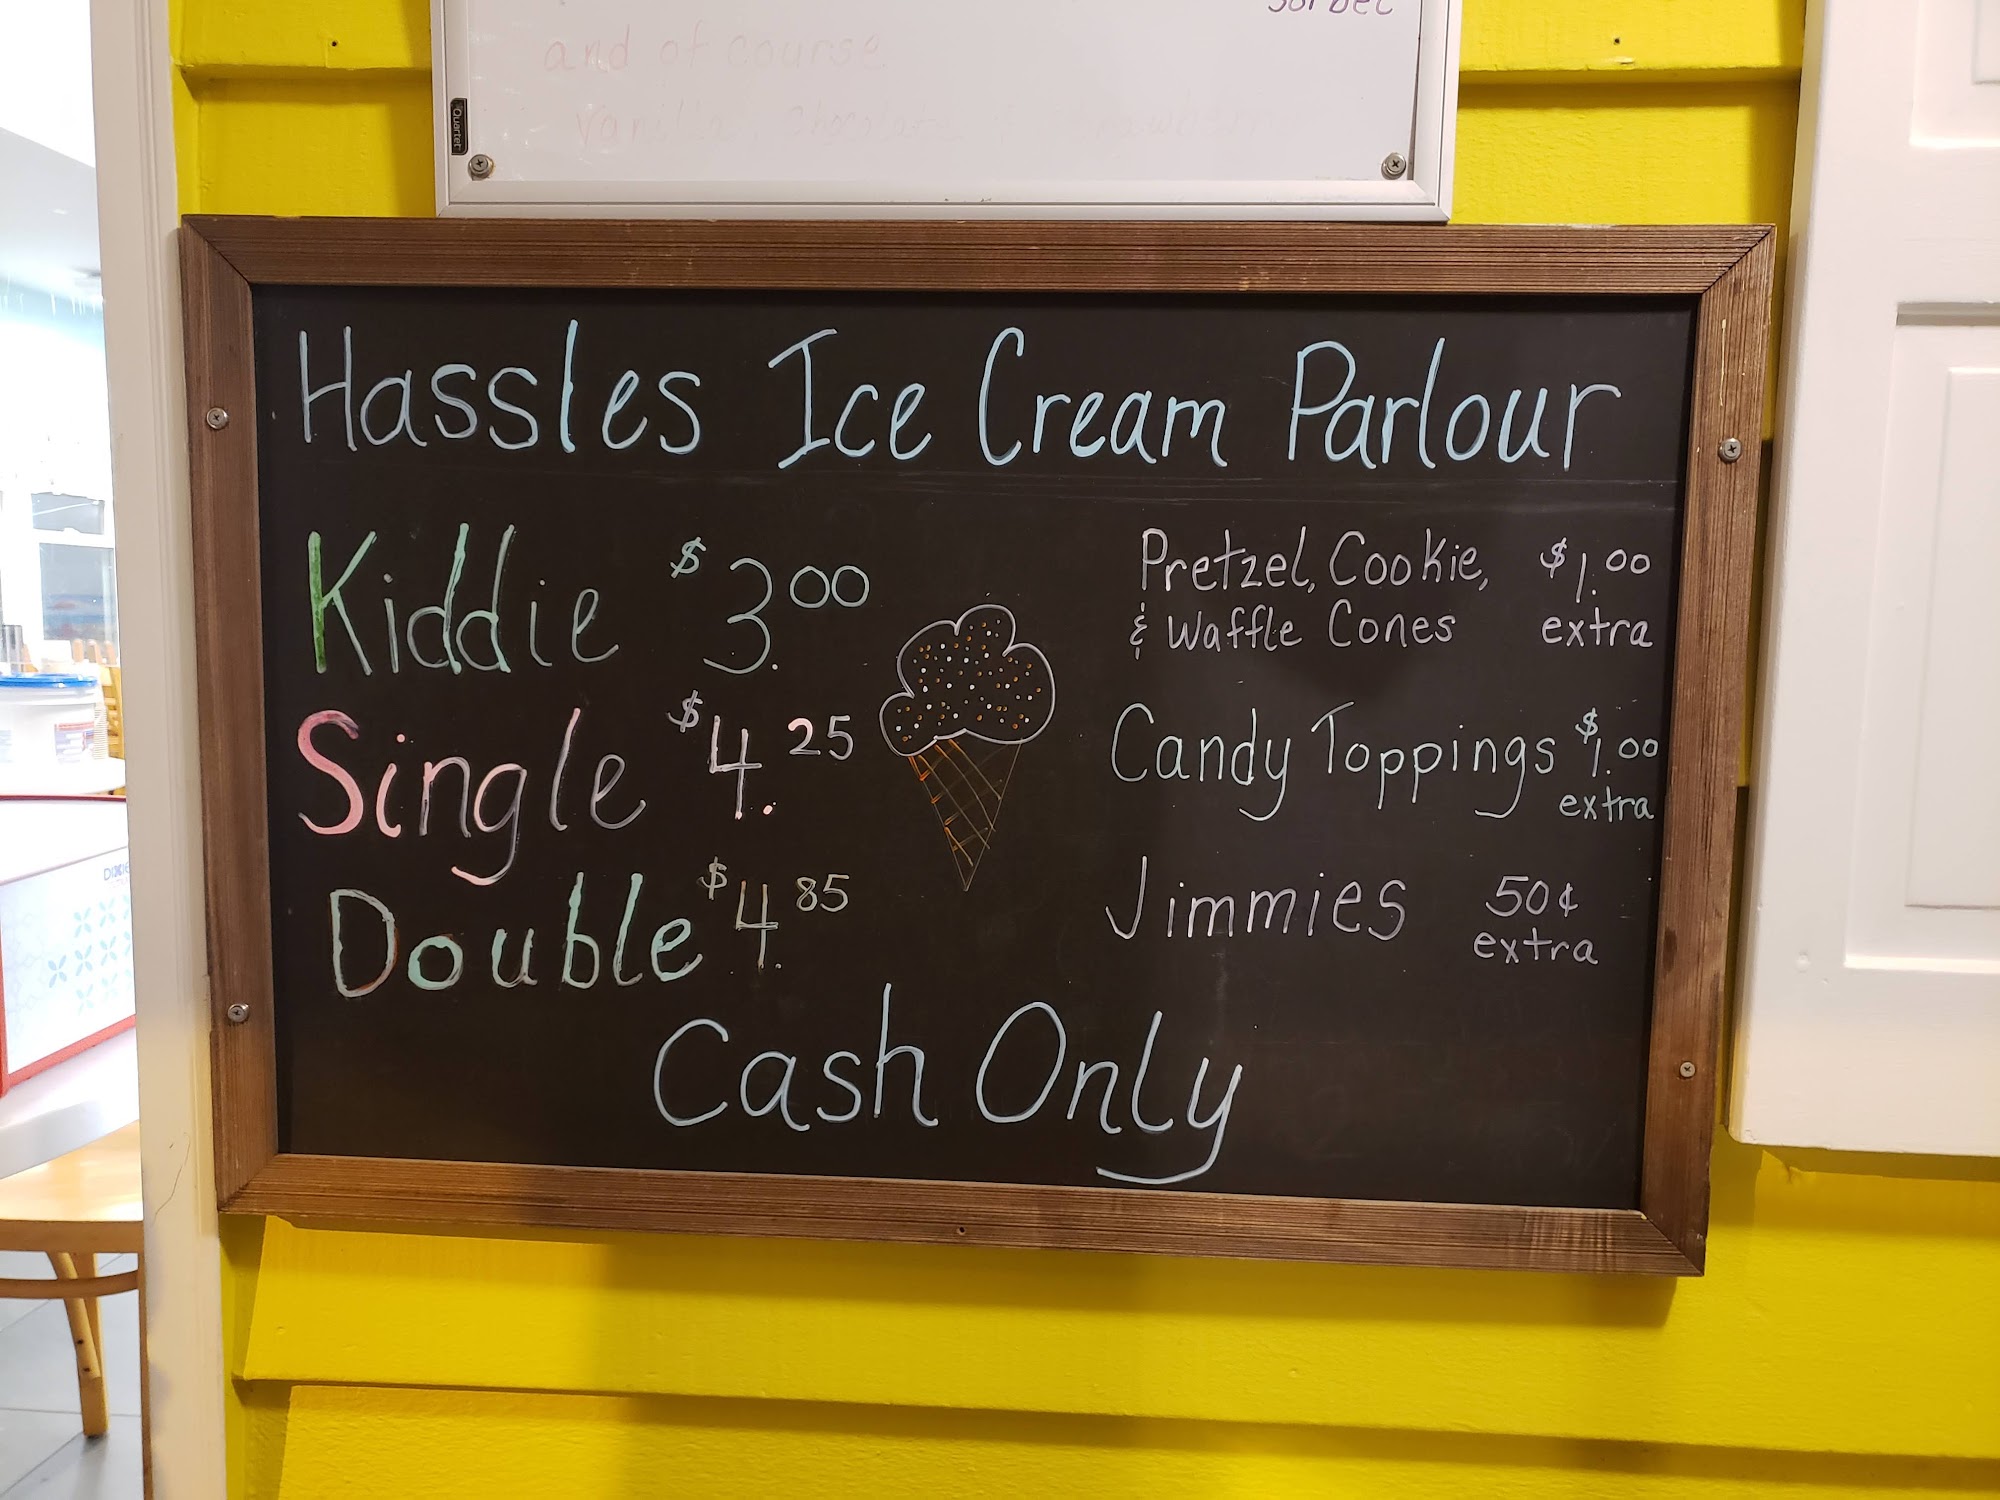 and of course
vanilla, chocolate
Quartet
Hassles Ice Cream Parlour
Kiddie $3.00
Single $4.25
Double $4.85
Pretzel, Cookie, $1.00
& Waffle Cones extra
Candy Toppings $1.00
extra
Jimmies 50¢
extra
Cash Only
DIXIE